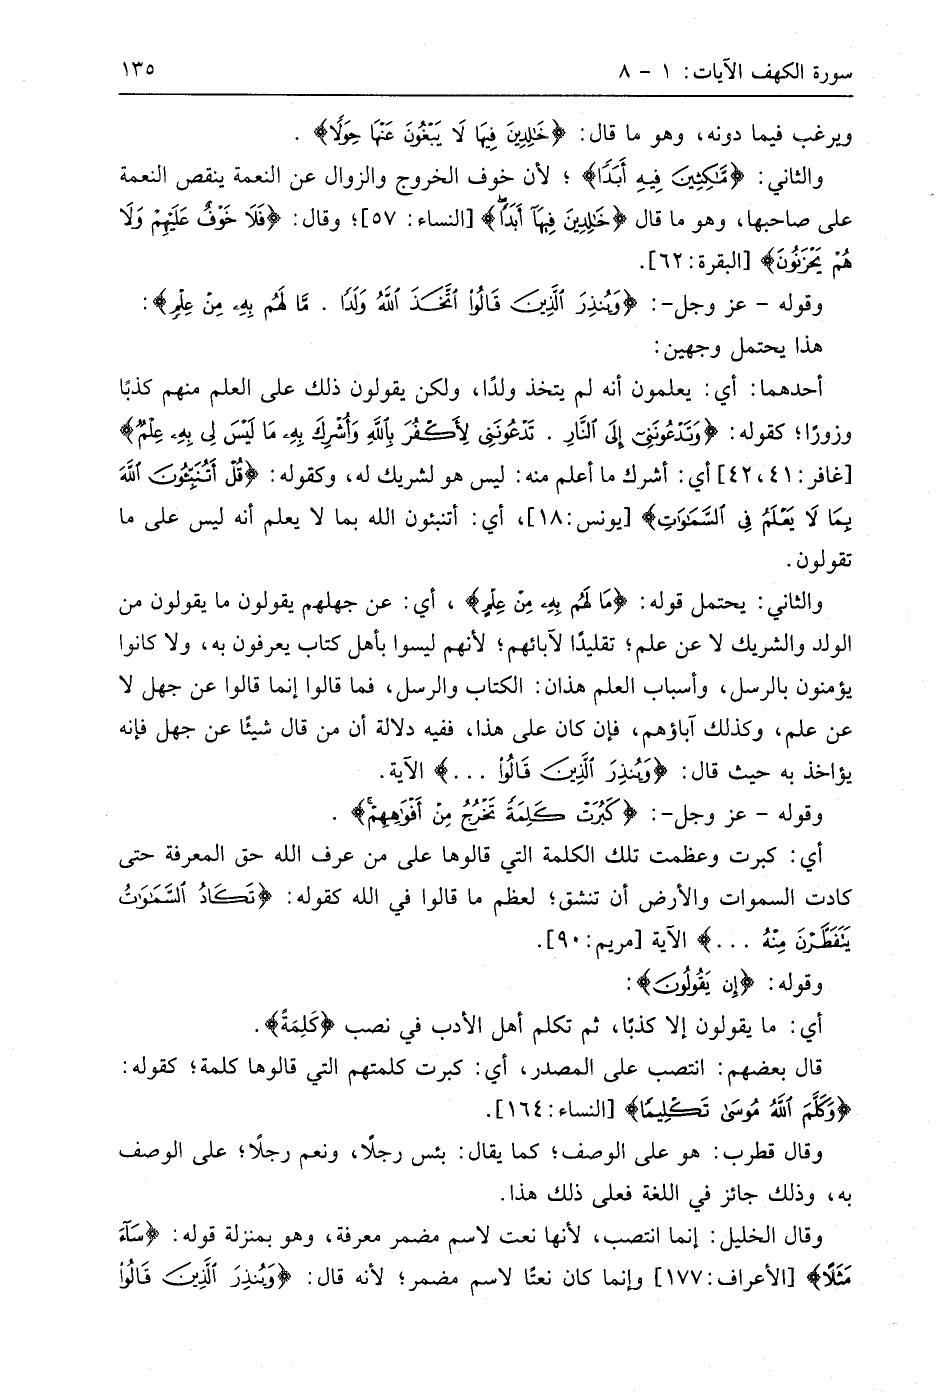 سورة الكهف الآيات: ١ - ٨ ١٣٥
ويرغب فيما دونه، وهو ما قال: ﴿خَٰلِدِينَ فِيهَا لَا يَبْغُونَ عَنْهَا حِوَلًا﴾ .
والثاني: ﴿مَّٰكِثِينَ فِيهِ أَبَدًا﴾ ؛ لأن خوف الخروج والزوال عن النعمة ينقص النعمة
على صاحبها، وهو ما قال ﴿خَٰلِدِينَ فِيهَآ أَبَدًاۖ﴾ [النساء: ٥٧]؛ وقال: ﴿فَلَا خَوْفٌ عَلَيْهِمْ وَلَا
هُمْ يَحْزَنُونَ﴾ [البقرة:٦٢].
وقوله - عز وجل-: ﴿وَيُنذِرَ ٱلَّذِينَ قَالُوا۟ ٱتَّخَذَ ٱللَّهُ وَلَدًا . مَّا لَهُم بِهِۦ مِنْ عِلْمٍ﴾:
هذا يحتمل وجهين:
أحدهما: أي: يعلمون أنه لم يتخذ ولدًا، ولكن يقولون ذلك على العلم منهم كذبًا
وزورًا؛ كقوله: ﴿وَتَدْعُونَنِىٓ إِلَى ٱلنَّارِ . تَدْعُونَنِى لِأَكْفُرَ بِٱللَّهِ وَأُشْرِكَ بِهِۦ مَا لَيْسَ لِى بِهِۦ عِلْمٌ﴾
[غافر:٤١، ٤٢] أي: أشرك ما أعلم منه: ليس هو لشريك له، وكقوله: ﴿قُلْ أَتُنَبِّـُٔونَ ٱللَّهَ
بِمَا لَا يَعْلَمُ فِى ٱلسَّمَٰوَٰتِ﴾ [يونس:١٨]، أي: أتنبئون الله بما لا يعلم أنه ليس على ما
تقولون.
والثاني: يحتمل قوله: ﴿مَا لَهُم بِهِۦ مِنْ عِلْمٍ﴾ ، أي: عن جهلهم يقولون ما يقولون من
الولد والشريك لا عن علم؛ تقليدًا لآبائهم؛ لأنهم ليسوا بأهل كتاب يعرفون به، ولا كانوا
يؤمنون بالرسل، وأسباب العلم هذان: الكتاب والرسل، فما قالوا إنما قالوا عن جهل لا
عن علم، وكذلك آباؤهم، فإن كان على هذا، ففيه دلالة أن من قال شيئًا عن جهل فإنه
يؤاخذ به حيث قال: ﴿وَيُنذِرَ ٱلَّذِينَ قَالُوا۟ ...﴾ الآية.
وقوله - عز وجل-: ﴿كَبُرَتْ كَلِمَةً تَخْرُجُ مِنْ أَفْوَٰهِهِمْۚ﴾ .
أي: كبرت وعظمت تلك الكلمة التي قالوها على من عرف الله حق المعرفة حتى
كادت السموات والأرض أن تنشق؛ لعظم ما قالوا في الله كقوله: ﴿تَكَادُ ٱلسَّمَٰوَٰتُ
يَتَفَطَّرْنَ مِنْهُ ...﴾ الآية [مريم:٩٠].
وقوله: ﴿إِن يَقُولُونَ﴾:
أي: ما يقولون إلا كذبًا، ثم تكلم أهل الأدب في نصب ﴿كَلِمَةً﴾.
قال بعضهم: انتصب على المصدر، أي: كبرت كلمتهم التي قالوها كلمة؛ كقوله:
﴿وَكَلَّمَ ٱللَّهُ مُوسَىٰ تَكْلِيمًا﴾ [النساء:١٦٤].
وقال قطرب: هو على الوصف؛ كما يقال: بئس رجلًا، ونعم رجلًا؛ على الوصف
به، وذلك جائز في اللغة فعلى ذلك هذا.
وقال الخليل: إنما انتصب، لأنها نعت لاسم مضمر معرفة، وهو بمنزلة قوله: ﴿سَآءَ
مَثَلًا﴾ [الأعراف:١٧٧] وإنما كان نعتًا لاسم مضمر؛ لأنه قال: ﴿وَيُنذِرَ ٱلَّذِينَ قَالُوا۟